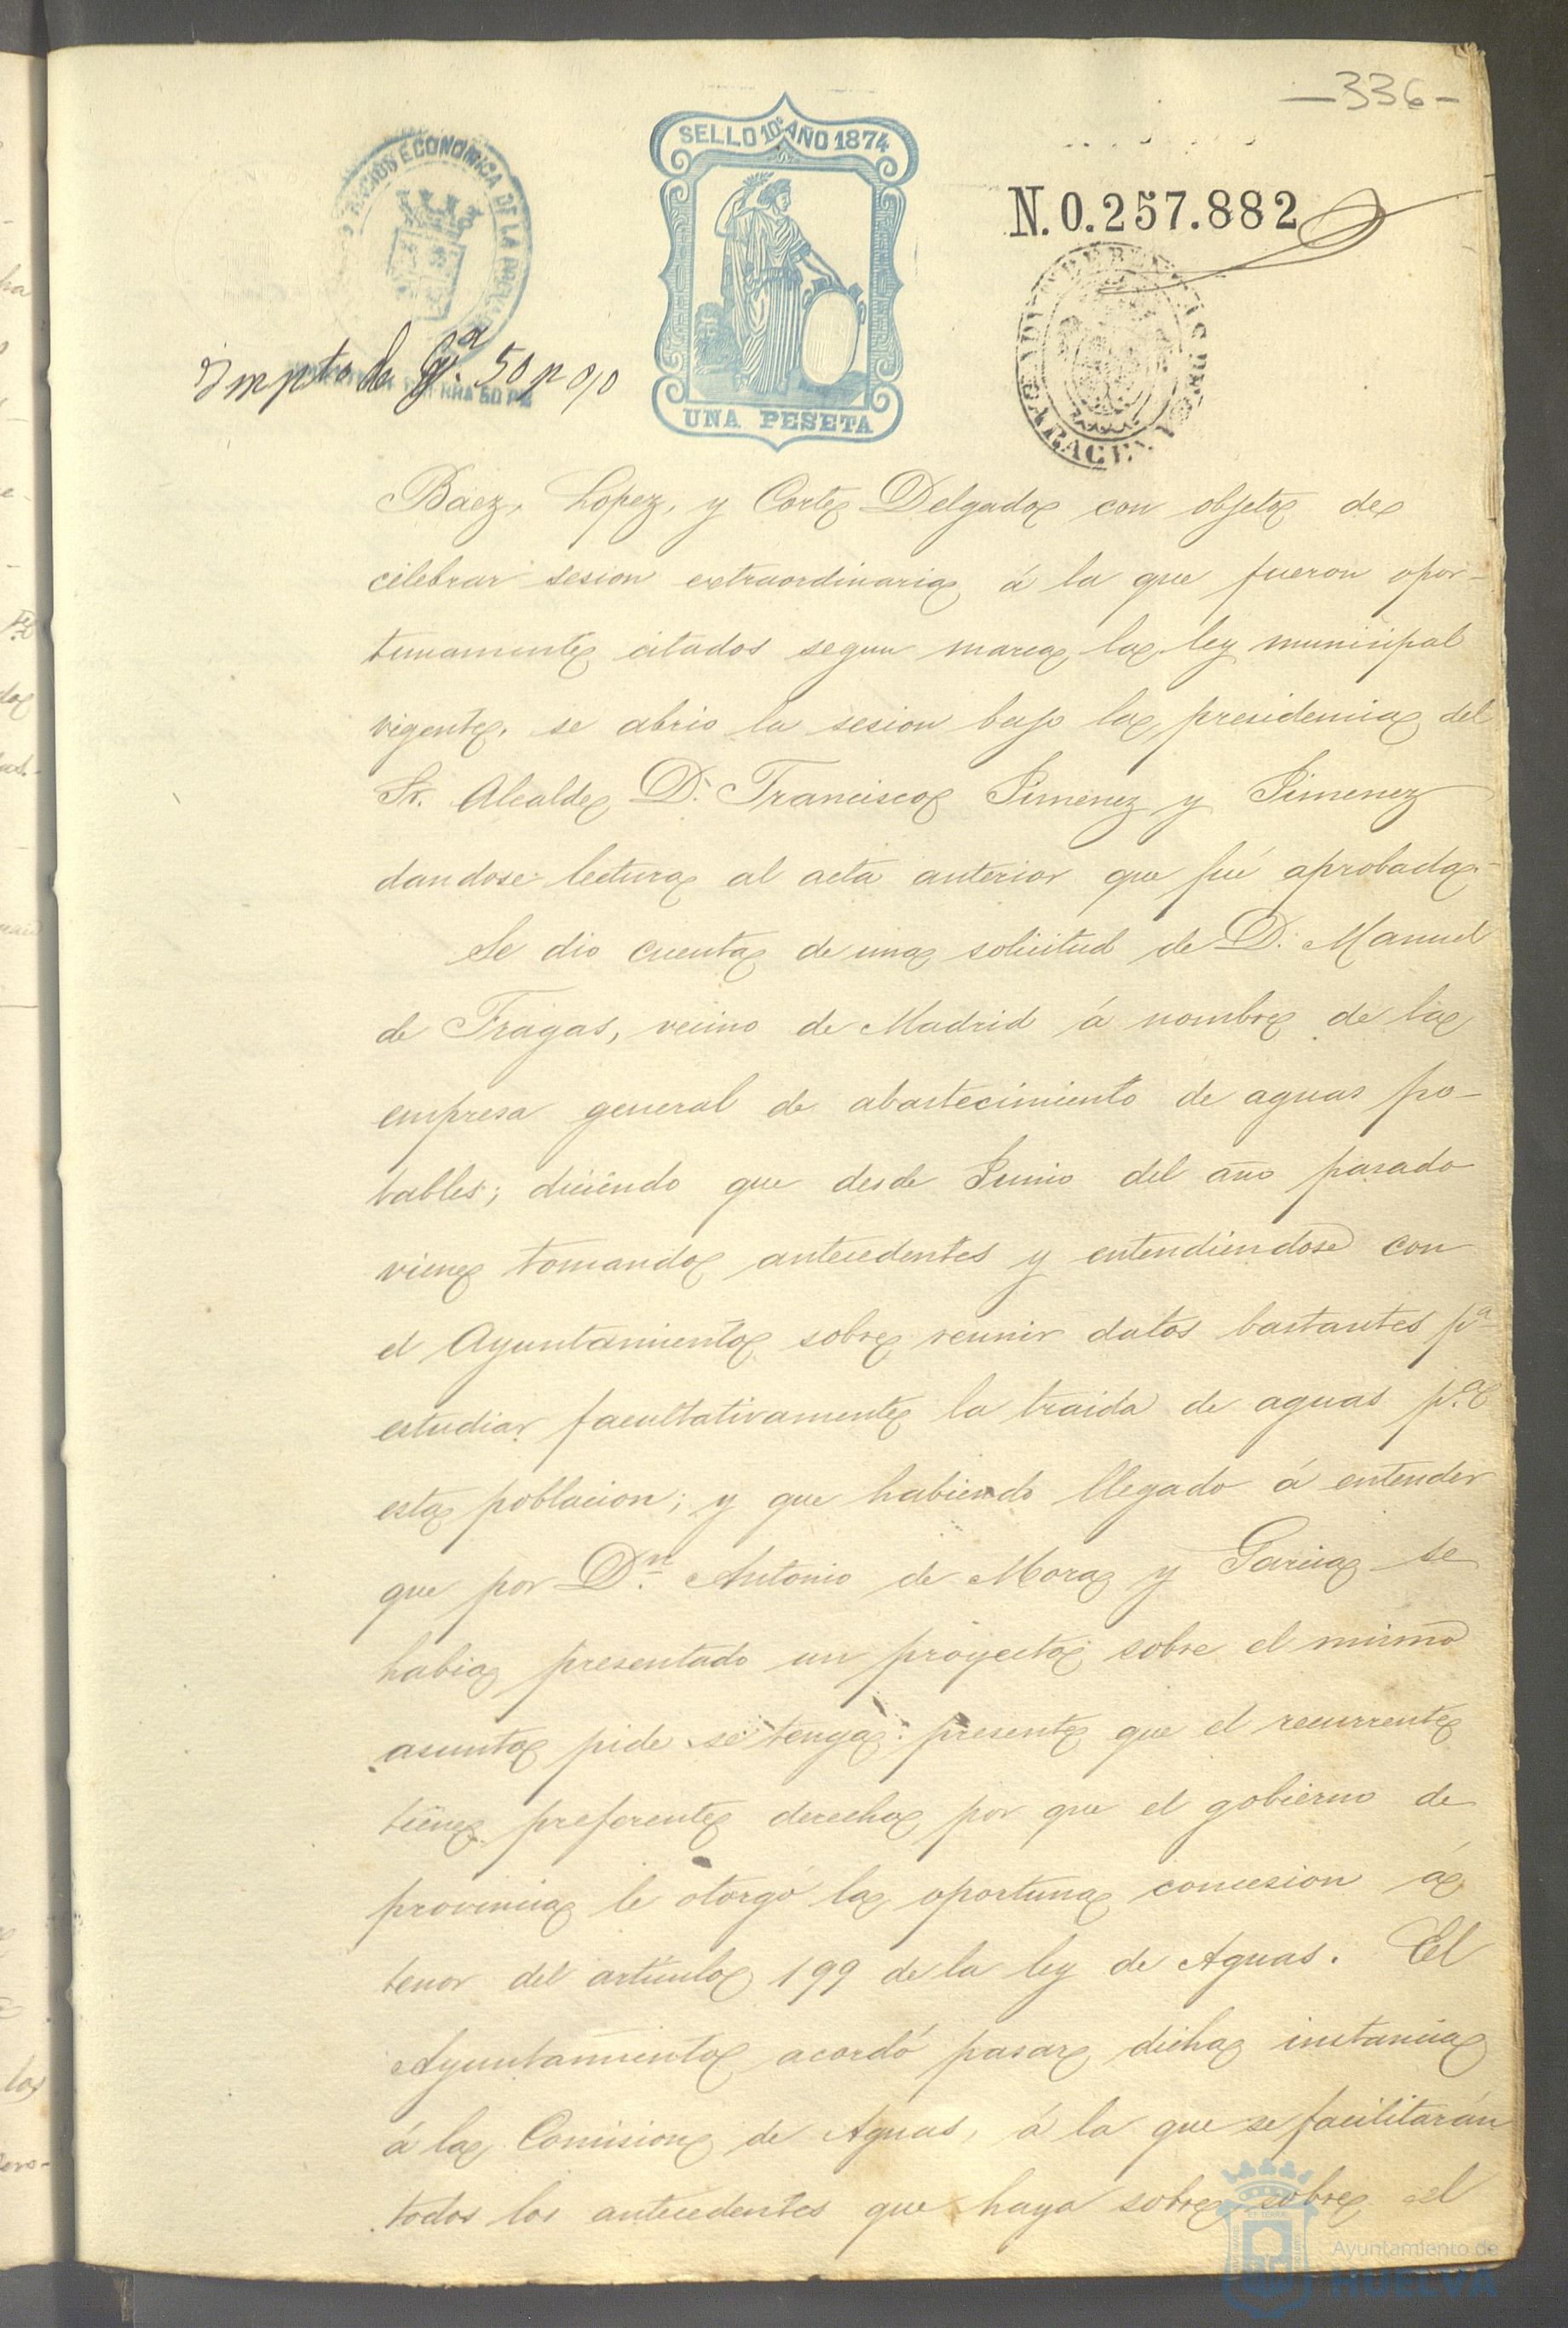 -336-
SELLO 10º AÑO 1874
N.0.257.882
ECONOMICA DE LA
Impto de Gª. 50 p 0/0
UNA PESETA
Baez, Lopez, y Corte Delgado con objeto de
celebrar sesion extraordinaria á la que fueron opor-
tunamente citados segun marca la ley municipal
vigente. se abrio la sesion bajo la presidencia del
Sr. Alcalde D. Francisco Jimenez y Jimenez
dandose lectura al acta anterior que fué aprobada.
Se dio cuenta de una solicitud de D. Manuel
de Fragas, vecino de Madrid á nombre de la
empresa general de abastecimiento de aguas po-
tables; diciendo que desde Junio del año pasado
viene tomando antecedentes y entendiendose con
el Ayuntamiento sobre reunir datos bastantes pª
estudiar facultativamente la traida de aguas p.ª
esta poblacion; y que habiendo llegado á entender
que por Dn. Antonio de Mora y Garcia se
habia presentado un proyecto sobre el mismo
asunto pide se tenga presente que el recurrente
tiene preferente derecho por que el gobierno de
provincia le otorgó la oportuna concesion á
tenor del articulo 199 de la ley de Aguas. El
Ayuntamiento acordó pasar dicha instancia
á la Comision de Aguas, á la que se facilitarán
todos los antecedentes que haya sobre sobre el
Ayuntamiento de
HUELVA